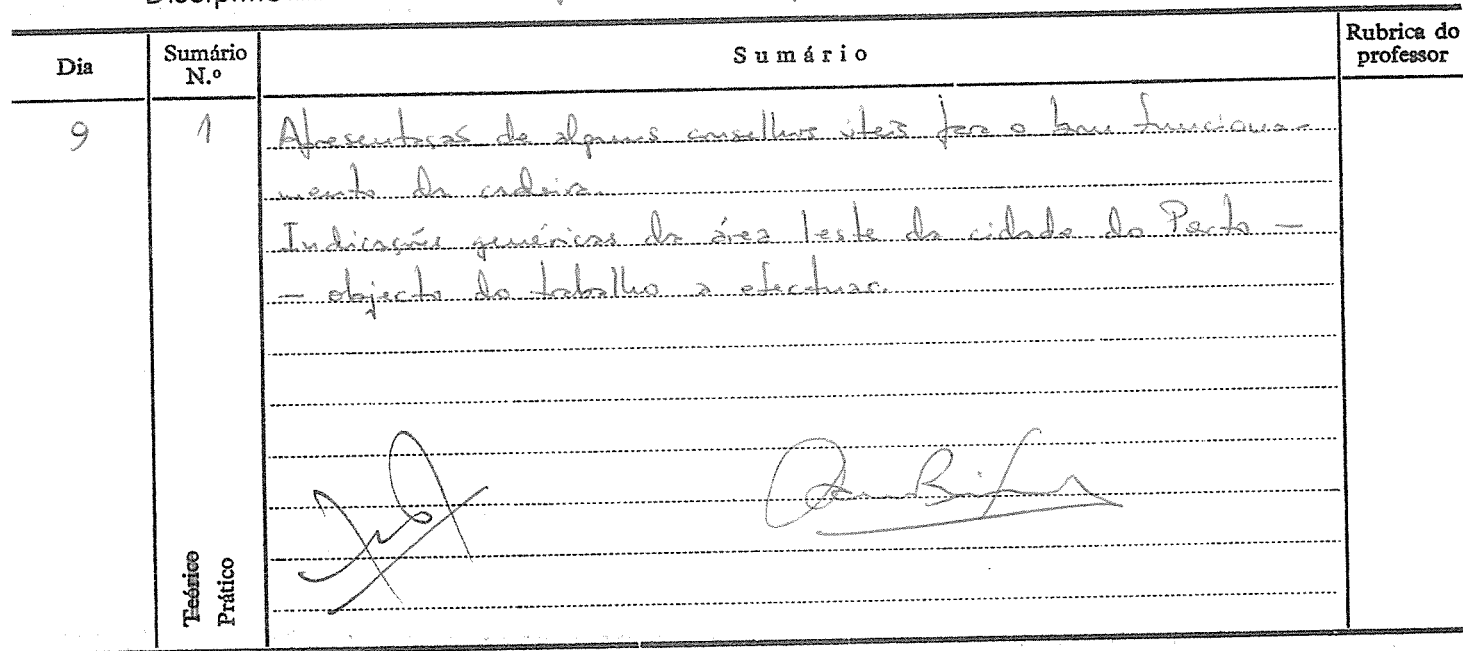 Dia
Sumário N.º
Sumário
Rubrica do professor
9
1
Apresentação de alguns conselhos úteis para o bom funciona-
mento da cadeira.
Indicações genéricas da área leste da cidade do Porto -
- objecto do trabalho a efectuar.
Teórico
Prático